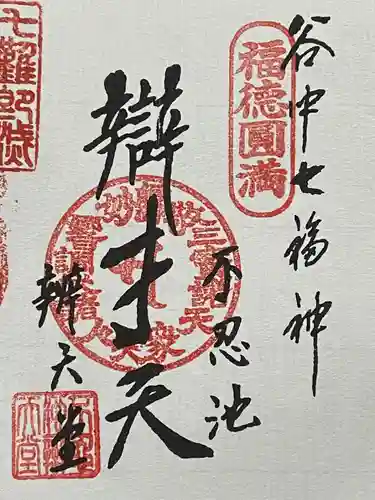 谷中七福神
福徳圓満
不忍池
辯才天
辨天堂
七難即滅